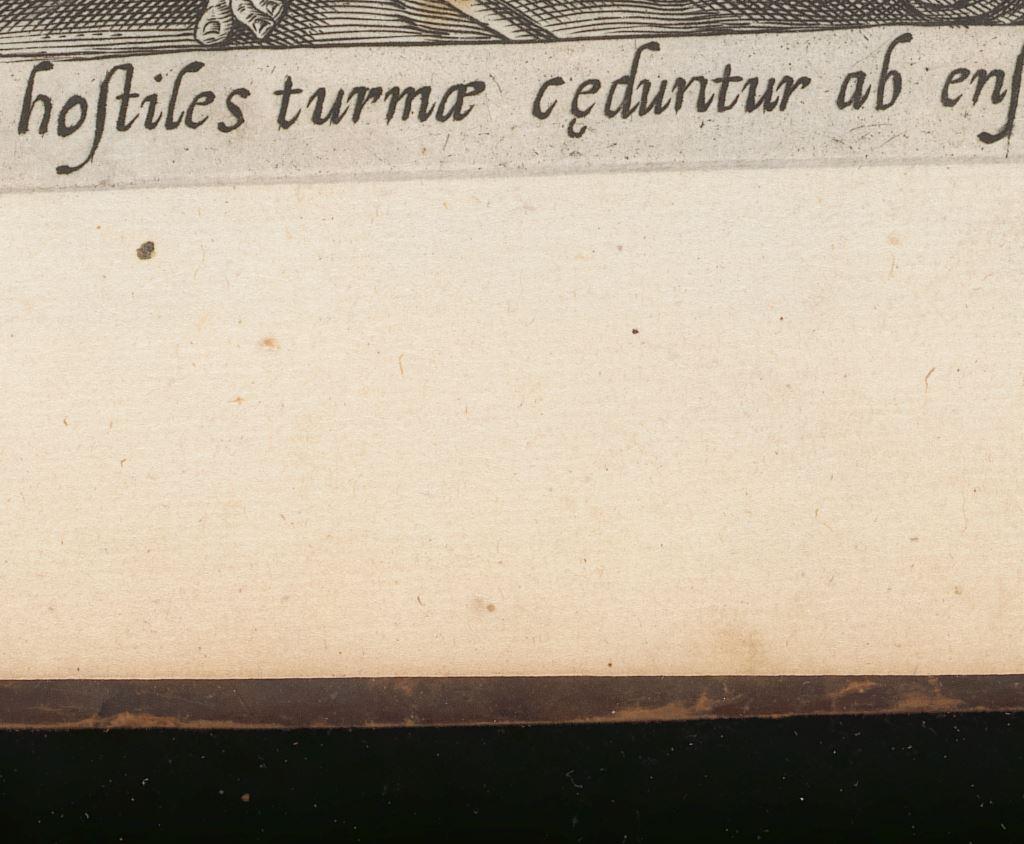 hoſtiles turmæ cęduntur ab enſ